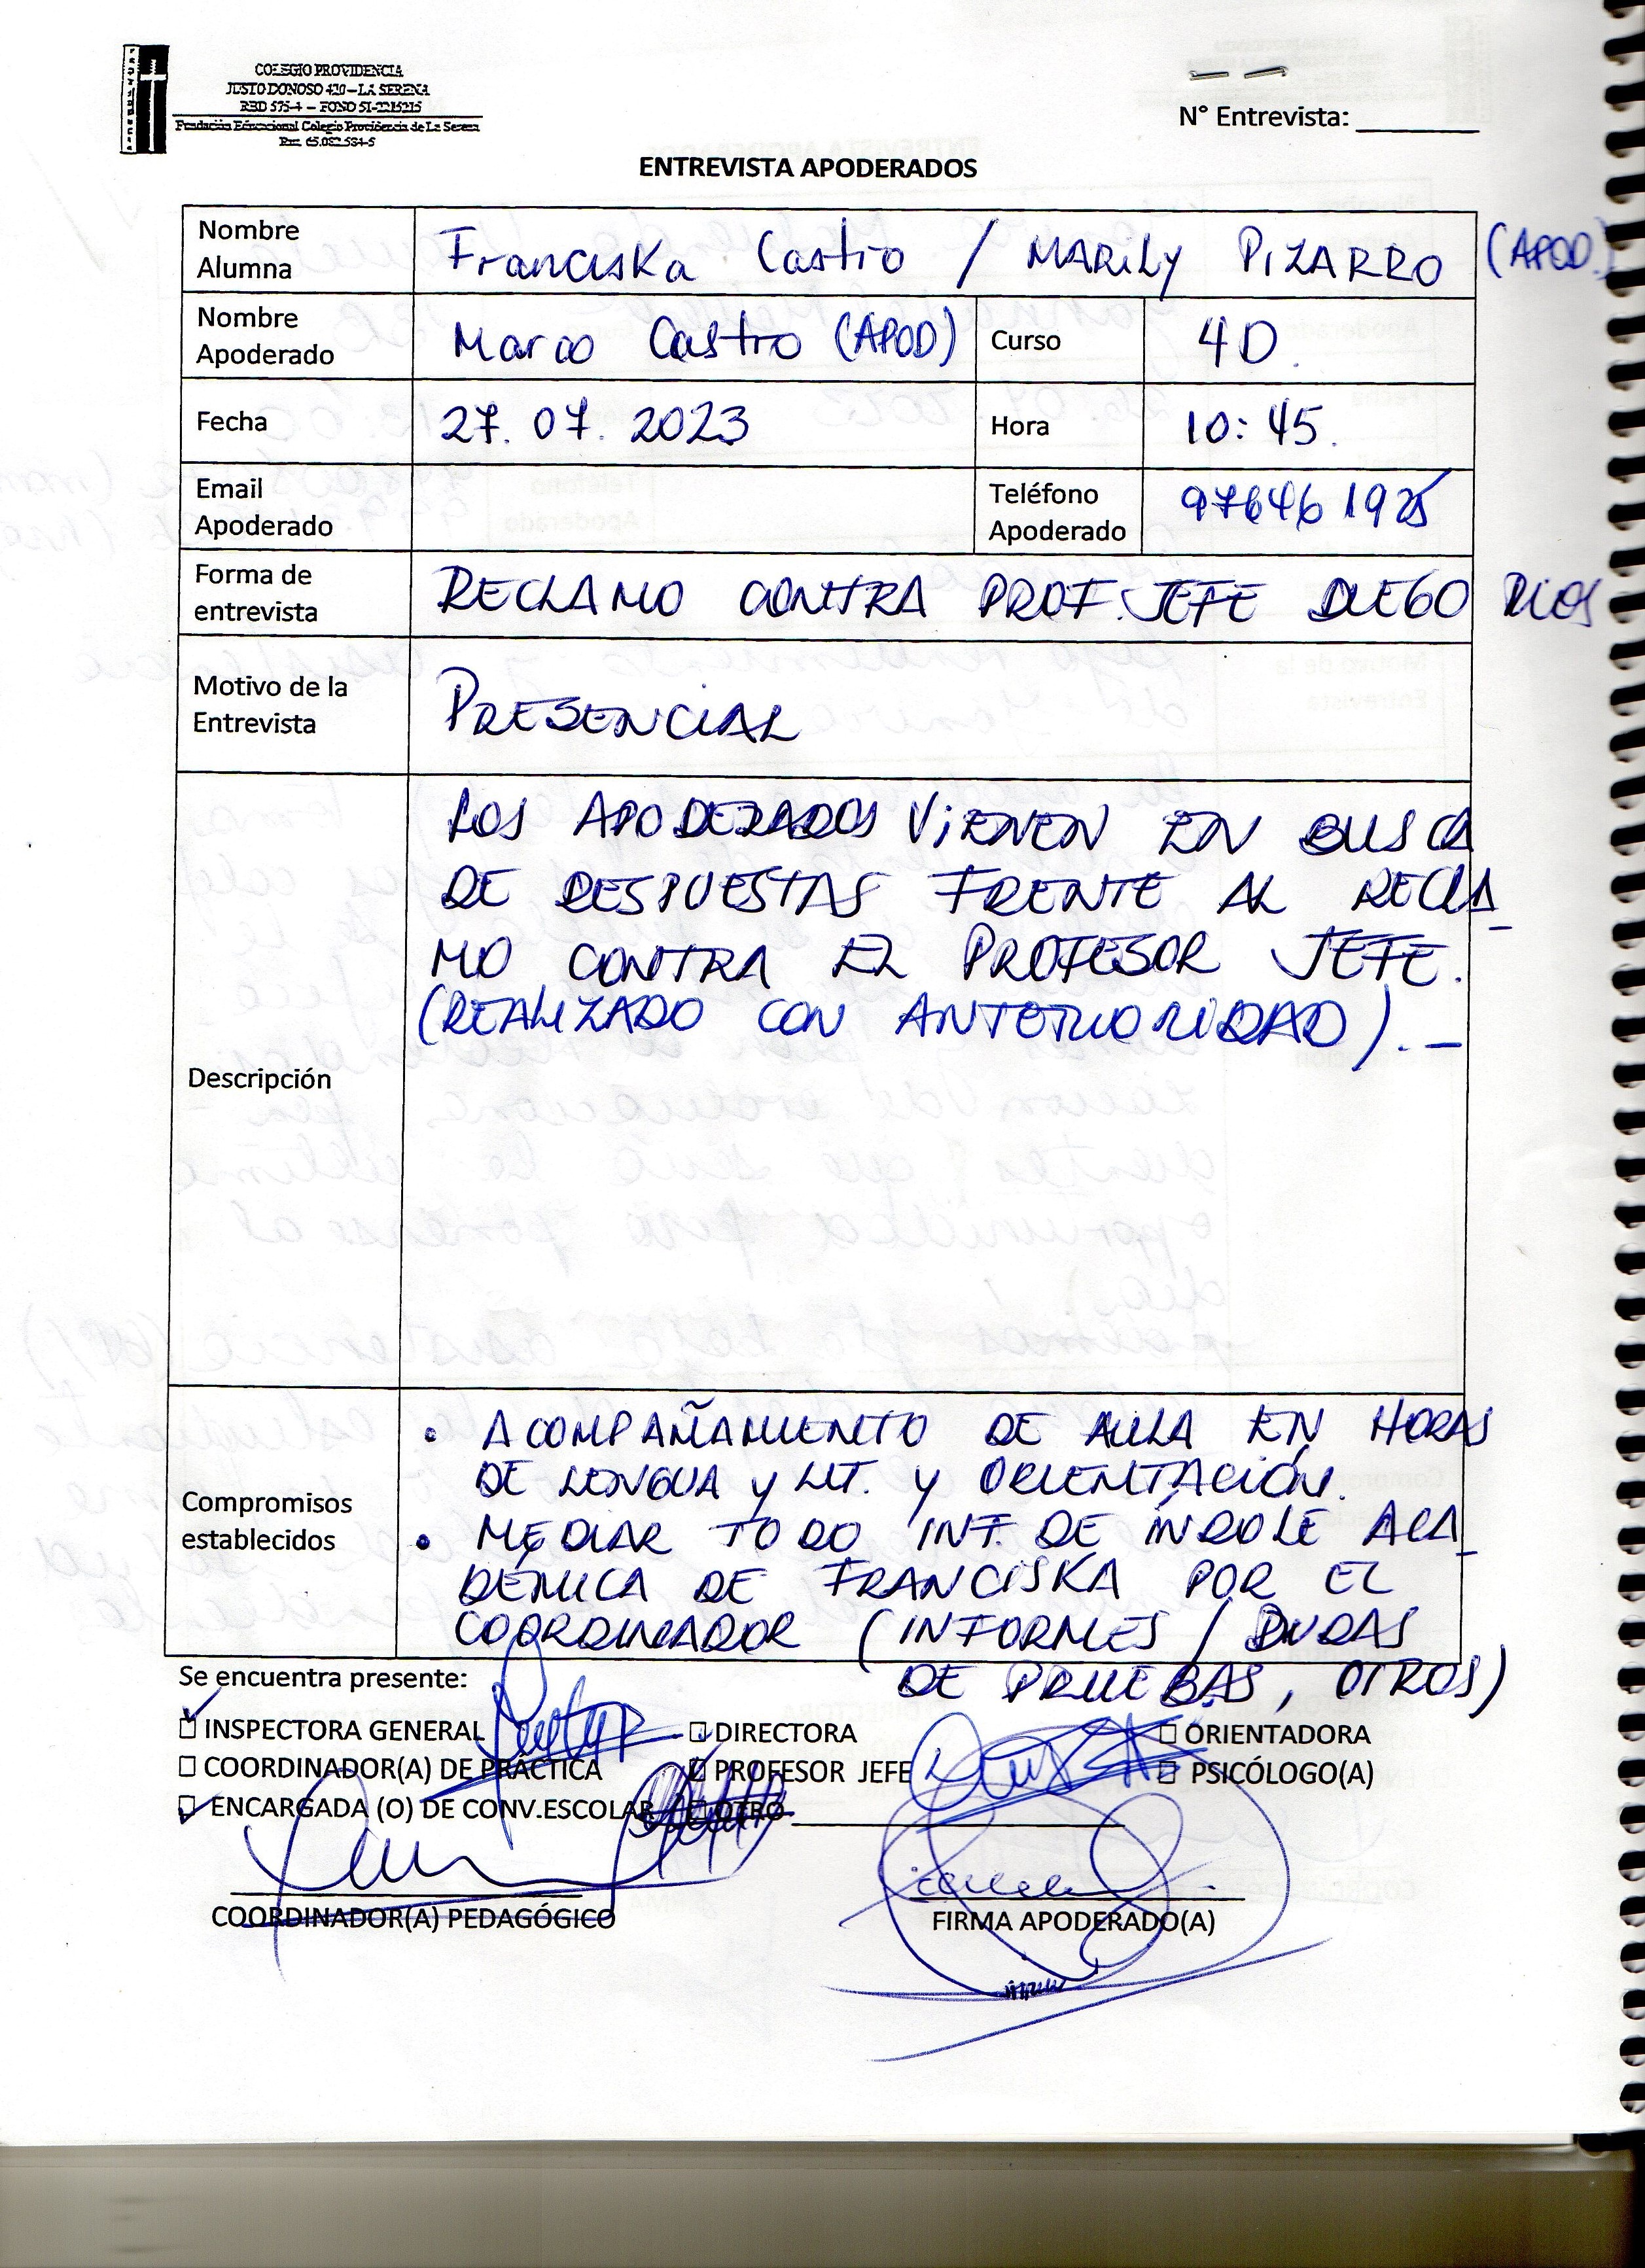 COLEGIO PROVIDENCIA
JUSTO DONOSO 420 – LA SERENA
RBD 575-4 – FONO 51-2215215
Fundación Educacional Colegio Providencia de La Serena
Rut: 65.082.534-5
N° Entrevista: ________
ENTREVISTA APODERADOS
Nombre Alumna Franciska Castro / MARILY PIZARRO (APOD.)
Nombre Apoderado Marco Castro (APOD) Curso 4D.
Fecha 27.07.2023 Hora 10:45.
Email Apoderado Teléfono Apoderado
Forma de entrevista RECLAMO CONTRA PROF. JEFE DIEGO RIOS
Motivo de la Entrevista PRESENCIAL
Descripción
LOS APODERADOS VIENEN EN BUSCA
DE RESPUESTAS FRENTE AL RECLA_
MO CONTRA EL PROFESOR JEFE.
(REALIZADO CON ANTERIORIDAD). _
Compromisos establecidos
• ACOMPAÑAMIENTO DE AULA EN HORAS
DE LENGUA y LIT. y ORIENTACIÓN.
• MEDIAR TODO INT. DE ÍNDOLE ACA_
DÉMICA DE FRANCISKA POR EL
COORDINADOR (INFORMES / DUDAS
DE PRUEBAS, OTROS)
Se encuentra presente:
☑ INSPECTORA GENERAL ☐ DIRECTORA ☐ ORIENTADORA
☐ COORDINADOR(A) DE PRÁCTICA ☑ PROFESOR JEFE ☐ PSICÓLOGO(A)
☑ ENCARGADA (O) DE CONV.ESCOLAR ☐ OTRO ________
COORDINADOR(A) PEDAGÓGICO FIRMA APODERADO(A)